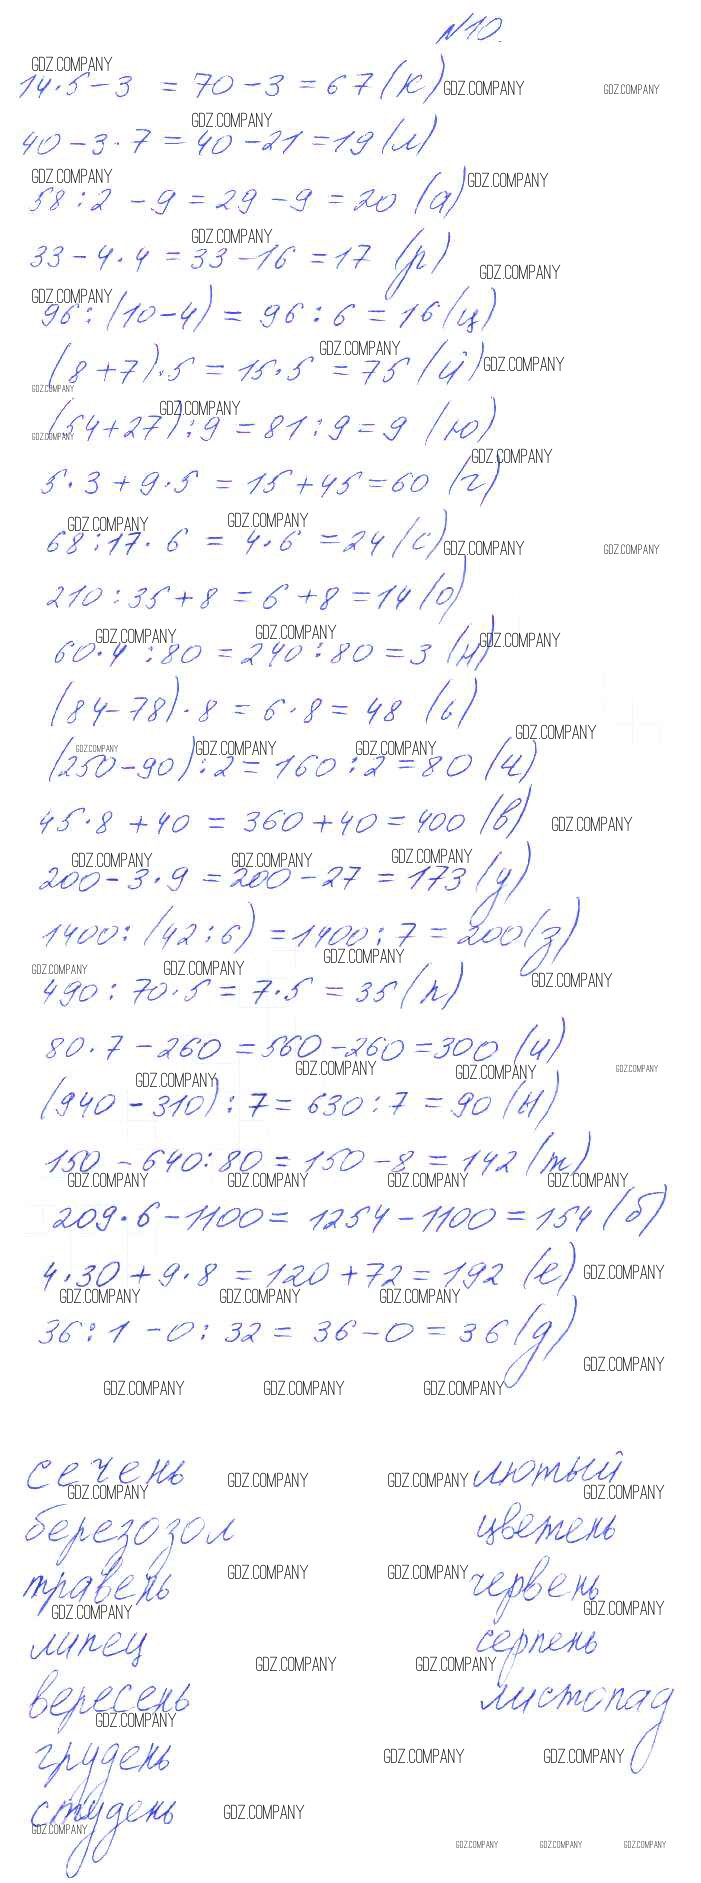 №10.
14·5-3 = 70-3 = 67 (к)
40-3·7 = 40-21 = 19 (л)
58:2-9 = 29-9 = 20 (а)
33-4·4 = 33-16 = 17 (р)
96:(10-4) = 96:6 = 16 (ц)
(8+7)·5 = 15·5 = 75 (й)
(54+27):9 = 81:9 = 9 (ю)
5·3+9·5 = 15+45 = 60 (г)
68:17·6 = 4·6 = 24 (с)
210:35+8 = 6+8 = 14 (о)
60·4:80 = 240:80 = 3 (н)
(84-78)·8 = 6·8 = 48 (ь)
(250-90):2 = 160:2 = 80 (ч)
45·8+40 = 360+40 = 400 (в)
200-3·9 = 200-27 = 173 (у)
1400:(42:6) = 1400:7 = 200 (з)
490:70·5 = 7·5 = 35 (п)
80·7-260 = 560-260 = 300 (и)
(940-310):7 = 630:7 = 90 (ы)
150-640:80 = 150-8 = 142 (т)
209·6-1100 = 1254-1100 = 154 (б)
4·30+9·8 = 120+72 = 192 (е)
36:1-0:32 = 36-0 = 36 (д)
сечень лютый
березозол цветень
травень червень
липец серпень
вересень листопад
грудень
студень
GDZ.COMPANY